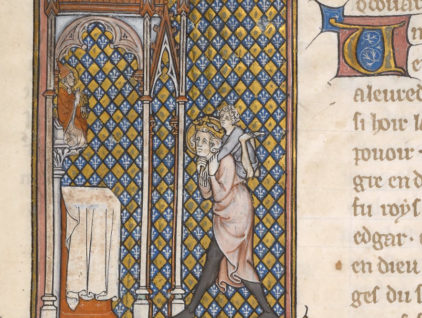 douar
U n
e
aleured
si hoir la
pouoir ·
en d
fu roys
edgar · e
en dieu
ges du s